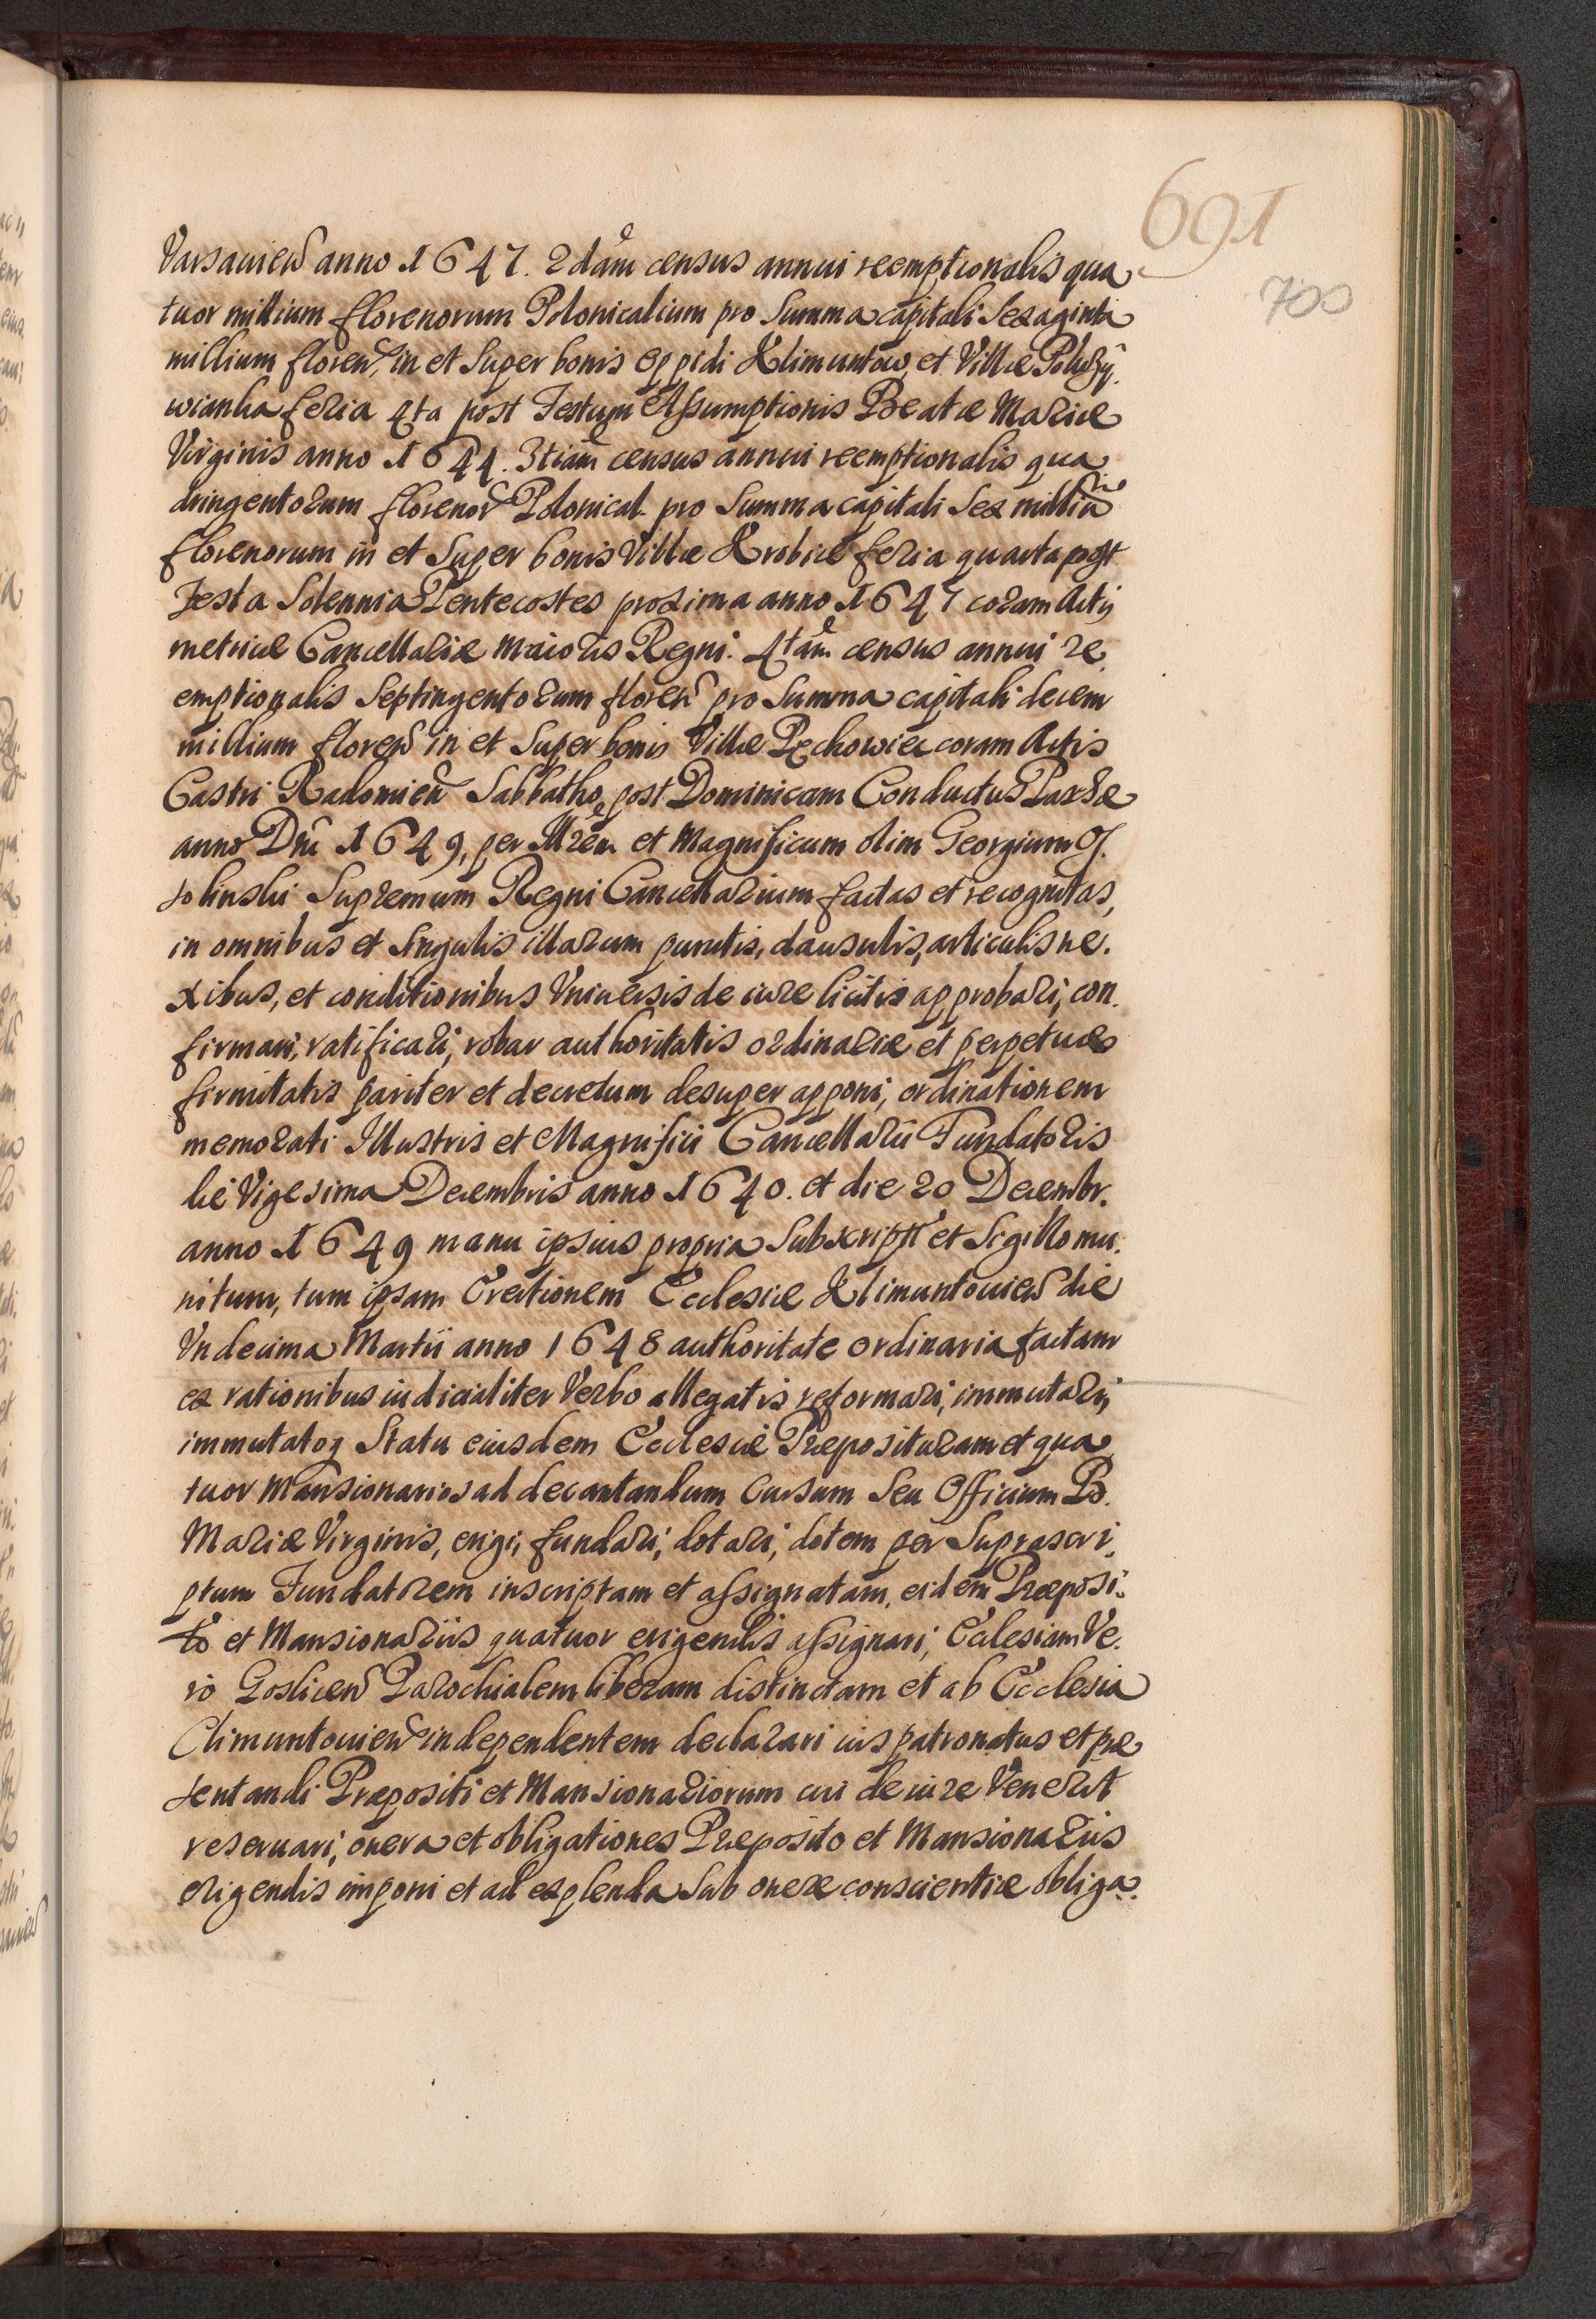 691
700
Varsavien anno 1647. 2dam census annui reemptionalis qua
tuor millium florenorum Polonicalium pro Summa capitali Sexaginta
millium floren, in et Super bonis Oppidi Klimuntow, et Villæ
wianka feria 4ta post Festum Assumptionis Beatæ Mariæ
Virginis anno 1644. 3tiam census annui reemptionalis qua
dringentorum florenor Polonical. pro Summa capitali Sex milliū
florenorum in et Super bonis Villæ Krobicē feria quarta post
Festa Solennia Pentecostes proxima anno 1647 coram Actis
metricæ Cancellariæ maioris Regni. 4tam census annui re
emptionalis Septingentorum floren pro Summa capitali decem
millium floren in et Super bonis Villæ Pęchowiec coram Actis
Castri Radomien Sabbatho post Dominicam Conductus Paschæ
anno Dni 1649, per Illrem et Magnificum olim Georgium Os
solinski Supremum Regni Cancellarium factas et recognitas,
in omnibus et Singulis illarum punctis, clausulis, articulis ne.
xibus, et conditionibus Vniuersis de iure licitis approbari, con.
firmari, ratificari, robur authoritatis ordinariæ et perpetuæ
firmitatis pariter et decretum desuper apponi, ordinationem
memorati Illustris et Magnifici Cancellarii Fundatoris
die Vigesima Decembris anno 1640. et die 20 Decembr.
anno 1649 manu ipsius propria Subscript et Sigillo mu.
nitum, tum ipsam Erectionem Ecclesiæ Klimuntouien die
Vndecima Martii anno 1648 authoritate ordinaria factam
ex rationibus iudicialiter Verbo allegatis reformari, immutari,
immutatoq Statu eiusdem Ecclesiæ Præposituram et qua
tuor Mansionarios ad decantandum Cursum Seu Officium B.
Mariæ Virginis, erigi, fundari, dotari, dotem per Suprascri.
ptum Fundatorem inscriptam et assignatam, eidem Præposi.
to et Mansionariis quatuor erigendis assignari, Ecclesiam Ve.
ro Goslicen Parochialem liberam distinctam et ab Ecclesia
Climuntouien independentem declarari ius patronatus et præ
sentandi Præpositi et Mansionariorum cui de iure Venerit
reseruari, onera et obligationes Præposito et Mansionariis
erigendis imponi et ad explenda Sub onere conscientiæ obliga.